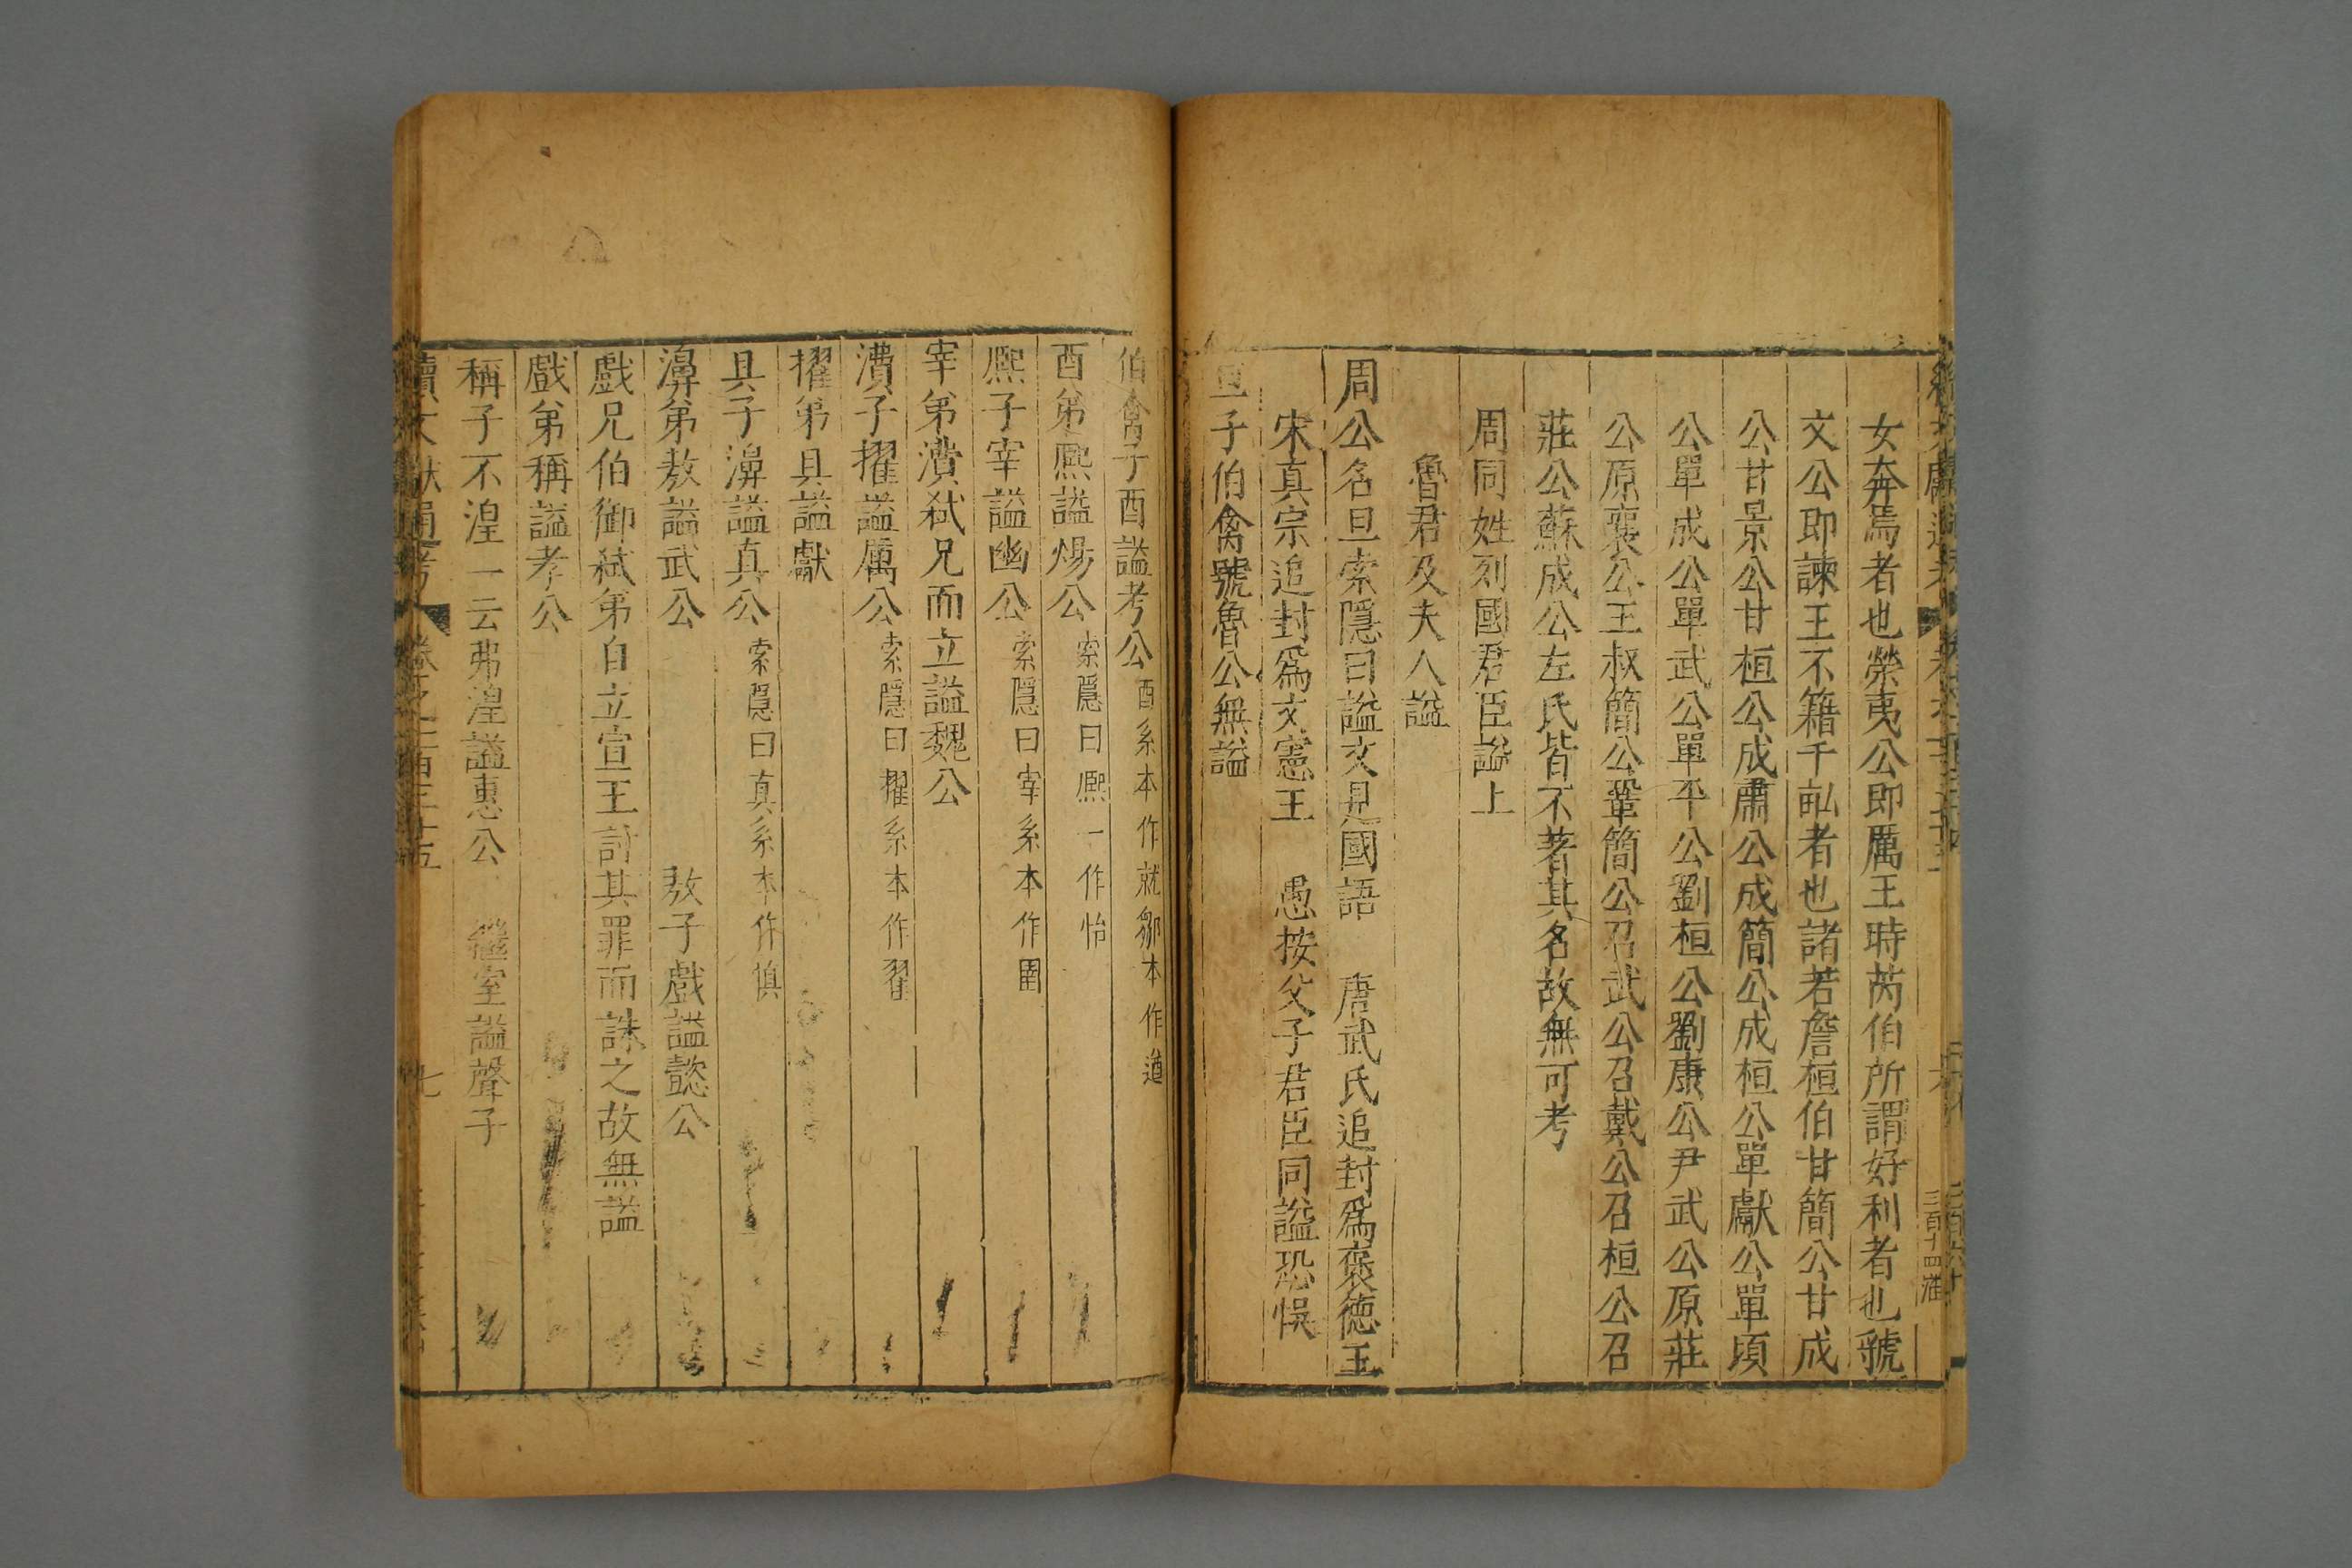 女奔焉者也榮夷公即厲王時芮伯所謂好利者也虢
文公即諫王不籍千畝者也諸若詹桓伯甘簡公甘成
公甘景公甘桓公成肅公成簡公成桓公單獻公單頃
公單成公單武公單平公劉桓公劉康公尹武公原莊
公原襄公王叔簡公鞏簡公召武公召戴公召桓公召
莊公蘇成公左氏皆不著其名故無可考
周同姓列國君臣諡上
魯君及夫人諡
周公名旦索隱曰諡文見國語 唐武氏追封爲褒德王
宋真宗追封爲文憲王 愚按父子君臣同諡恐悞
旦子伯禽號魯公無諡
伯禽子酉諡考公酉系本作就鄒本作遒
酉弟熈諡煬公索隱曰熈一作怡
熈子宰諡幽公索隱曰宰系本作圉
宰弟㵒弑兄而立諡魏公
㵒子擢諡厲公索隱曰擢系本作翟
擢弟具諡獻
具子濞諡真公索隱曰真系本作慎
濞弟敖諡武公 敖子戲諡懿公
戲兄伯御弑弟自立宣王討其罪而誅之故無諡
戲弟稱諡孝公
稱子不湟一云弗湟諡惠公 繼室諡聲子
續文獻通考 卷之一百三十五 七